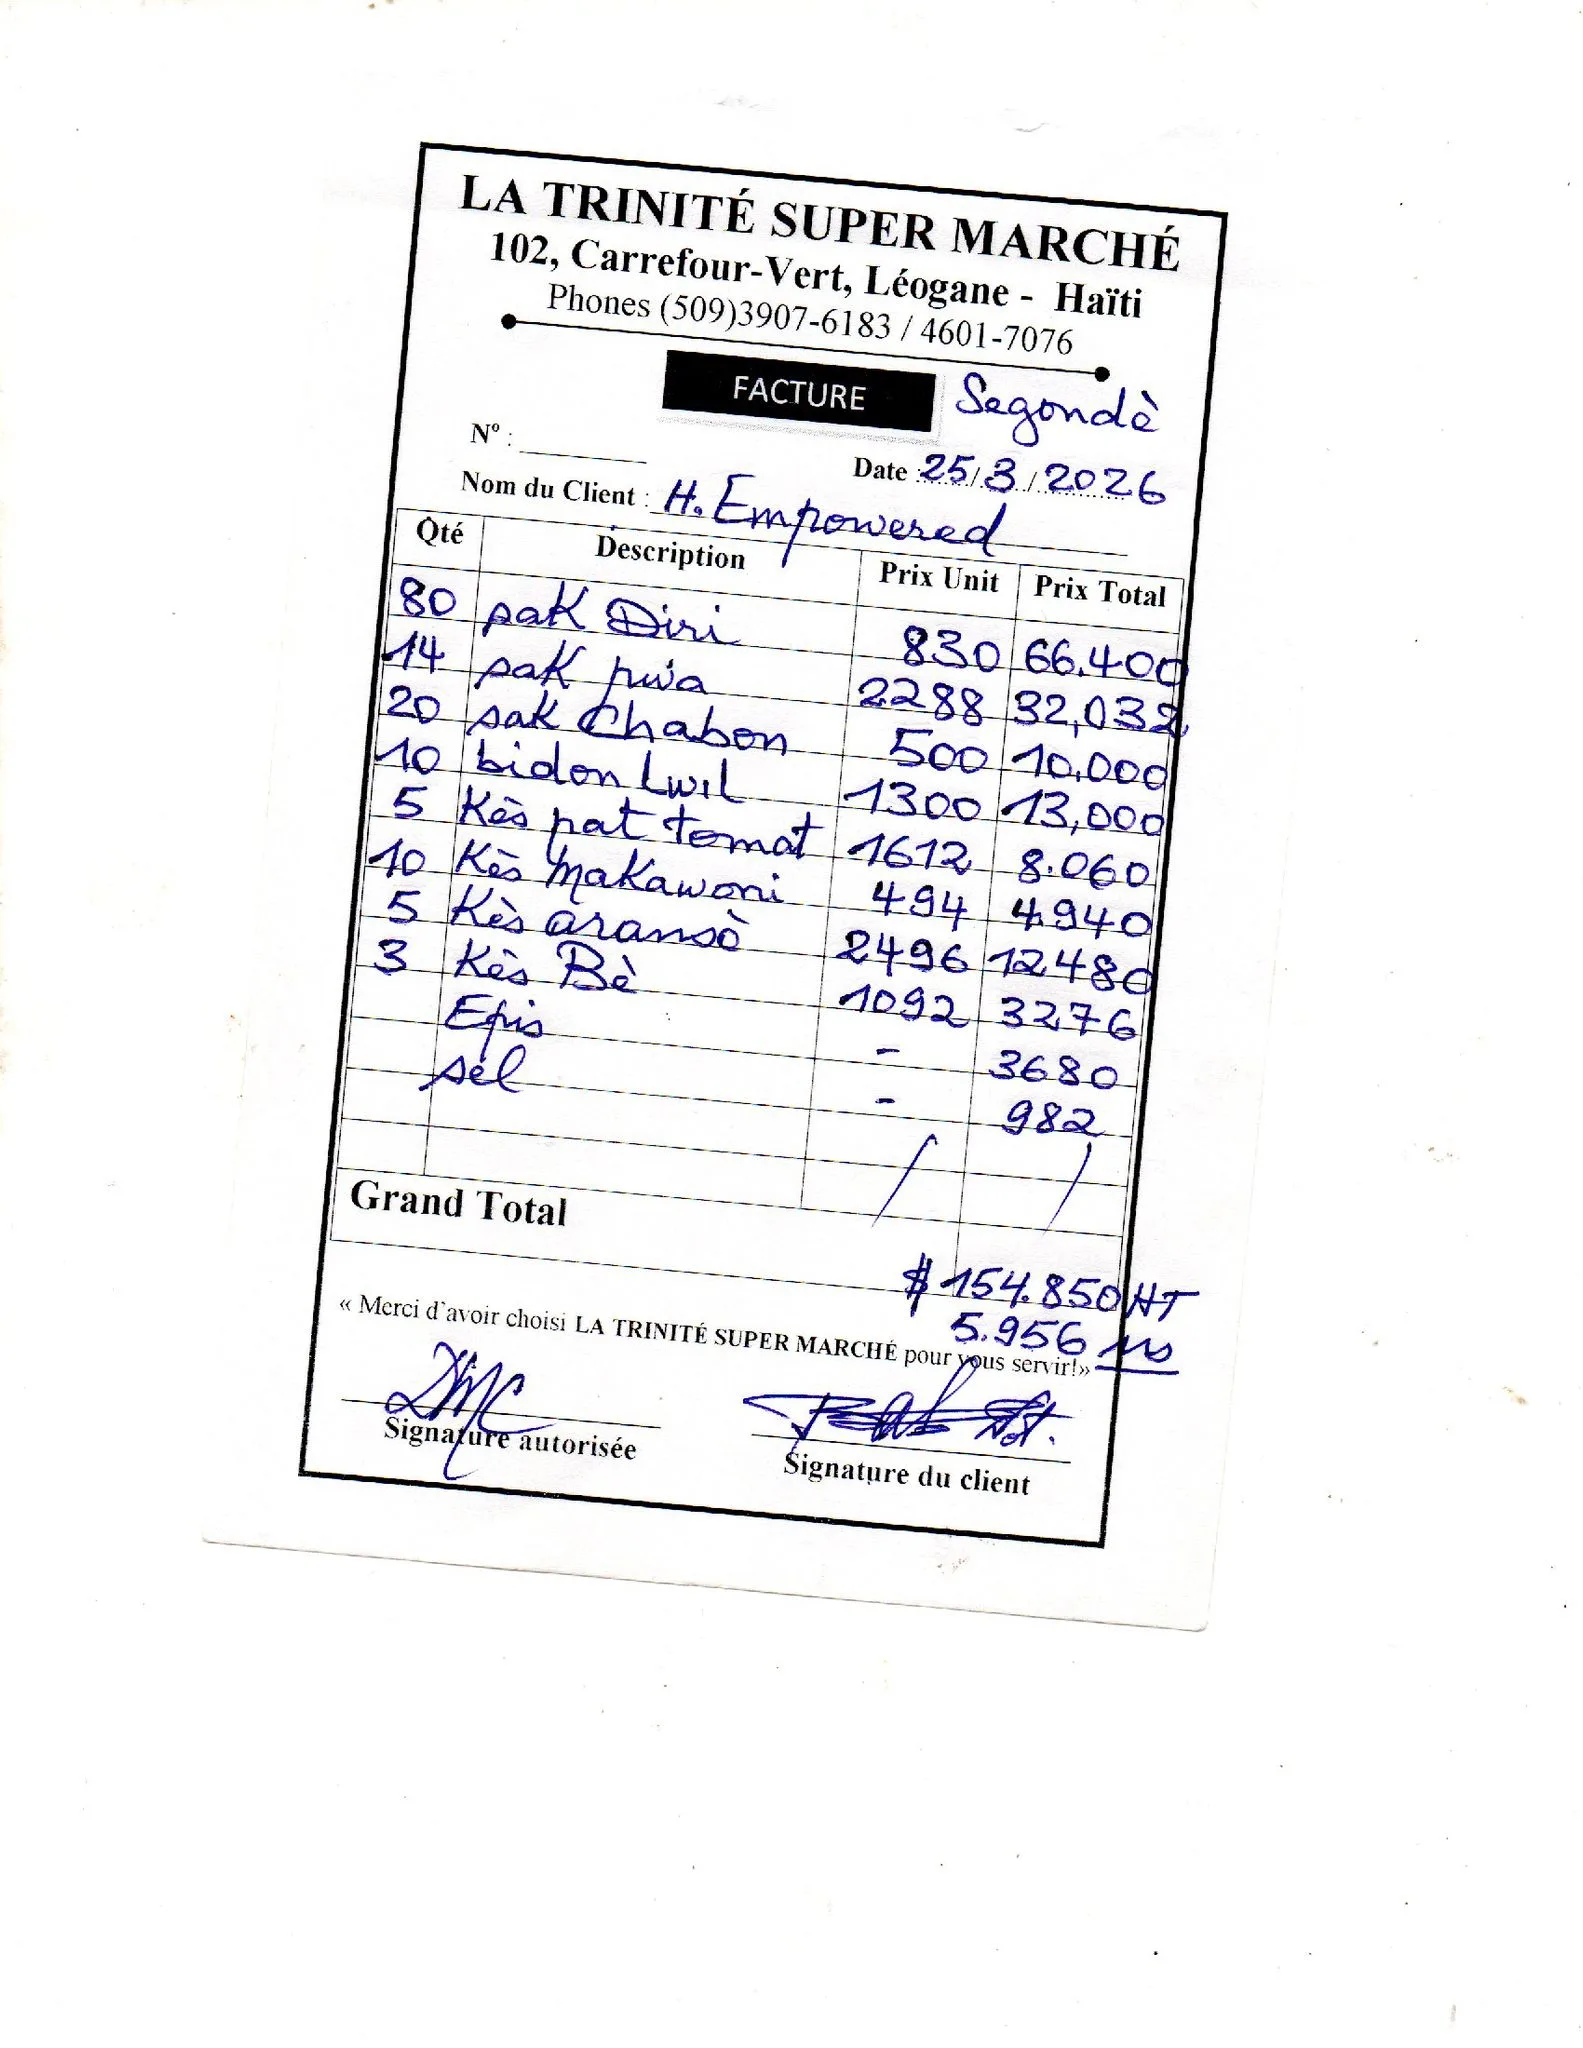 LA TRINITÉ SUPER MARCHÉ
102, Carrefour-Vert, Léogane - Haïti
Phones (509)3907-6183 / 4601-7076
FACTURE Segondè
Nº :
Date : 25/3/2026
Nom du Client : H. Empowered
Qté Description Prix Unit Prix Total
80 sak Diri 830 66.400
14 sak pwa 2288 32,032
20 sak Chabon 500 10.000
10 bidon Lwil 1300 13,000
5 Kès pat tomat 1612 8.060
10 Kès Makawoni 494 4940
5 Kès aransò 2496 12480
3 Kès Bè 1092 3276
Epis - 3680
sèl - 982
Grand Total
$ 154.850 HT
5.956 US
« Merci d'avoir choisi LA TRINITÉ SUPER MARCHÉ pour vous servir!»
Signature autorisée Signature du client